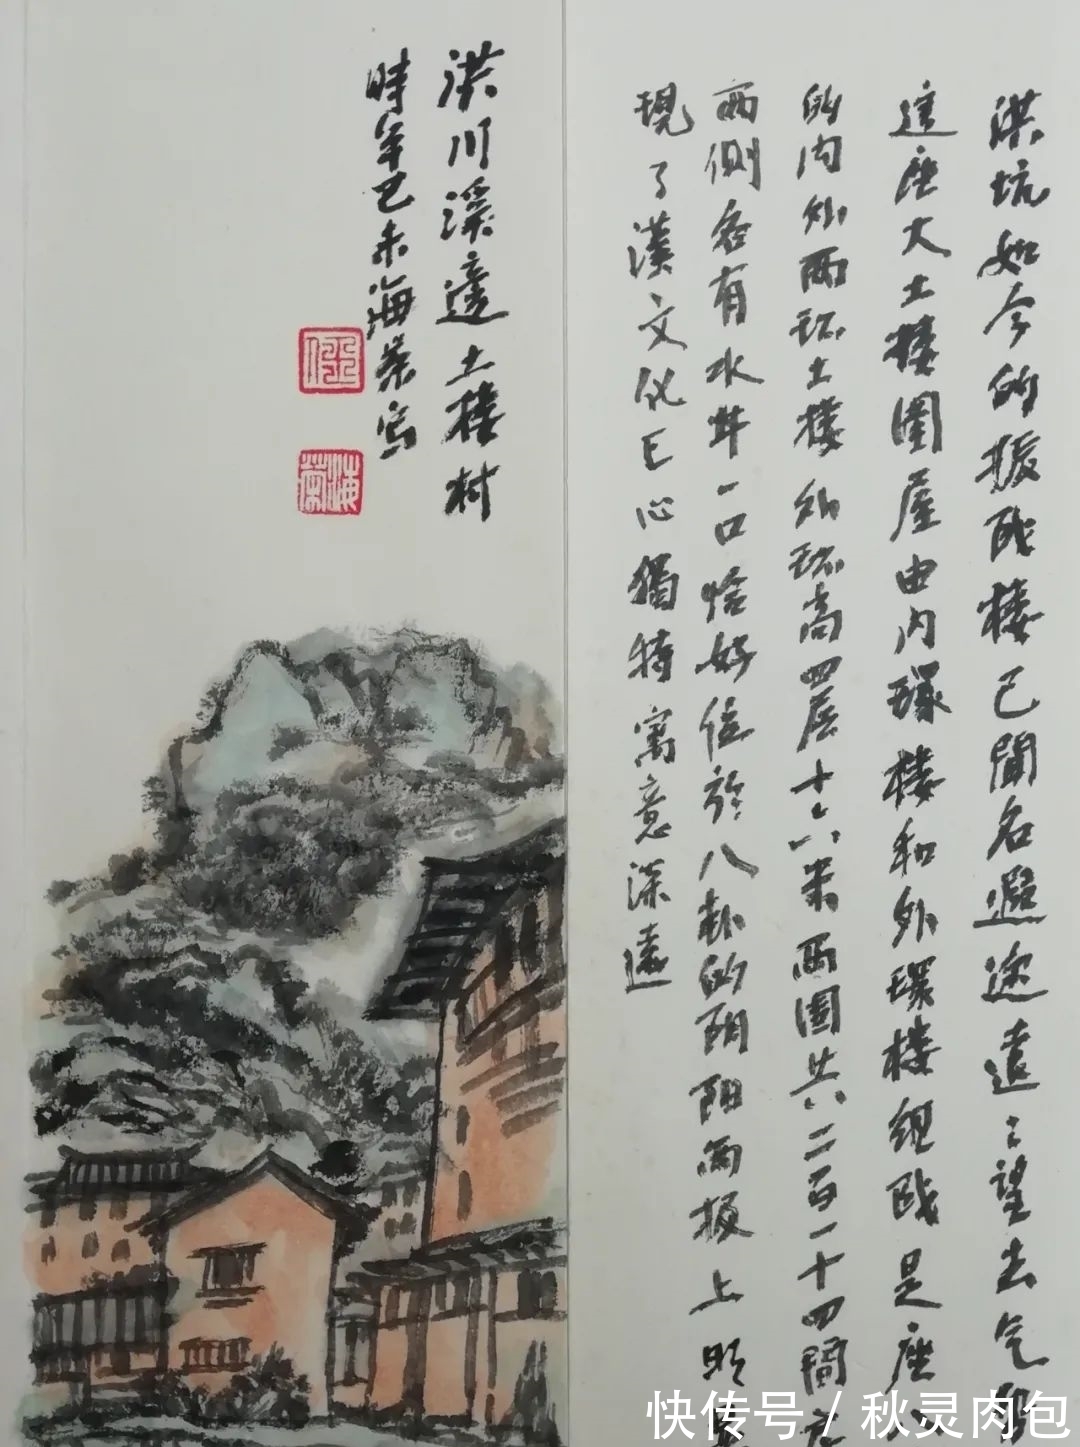 洪坑如今的振成樓已聞名遐迩遠〻望去气
這座大土樓圍屋由内環樓和外環樓組成是座八
的内外兩环土樓外环高四层十六米兩圍共二百一十四間
兩側各有水井一口恰好位於八卦的阴阳兩极上
現了漢文化匠心獨特寓意深遠
洪川溪邊土樓村
時年己未海荣写
海荣
快传号/秋灵肉包